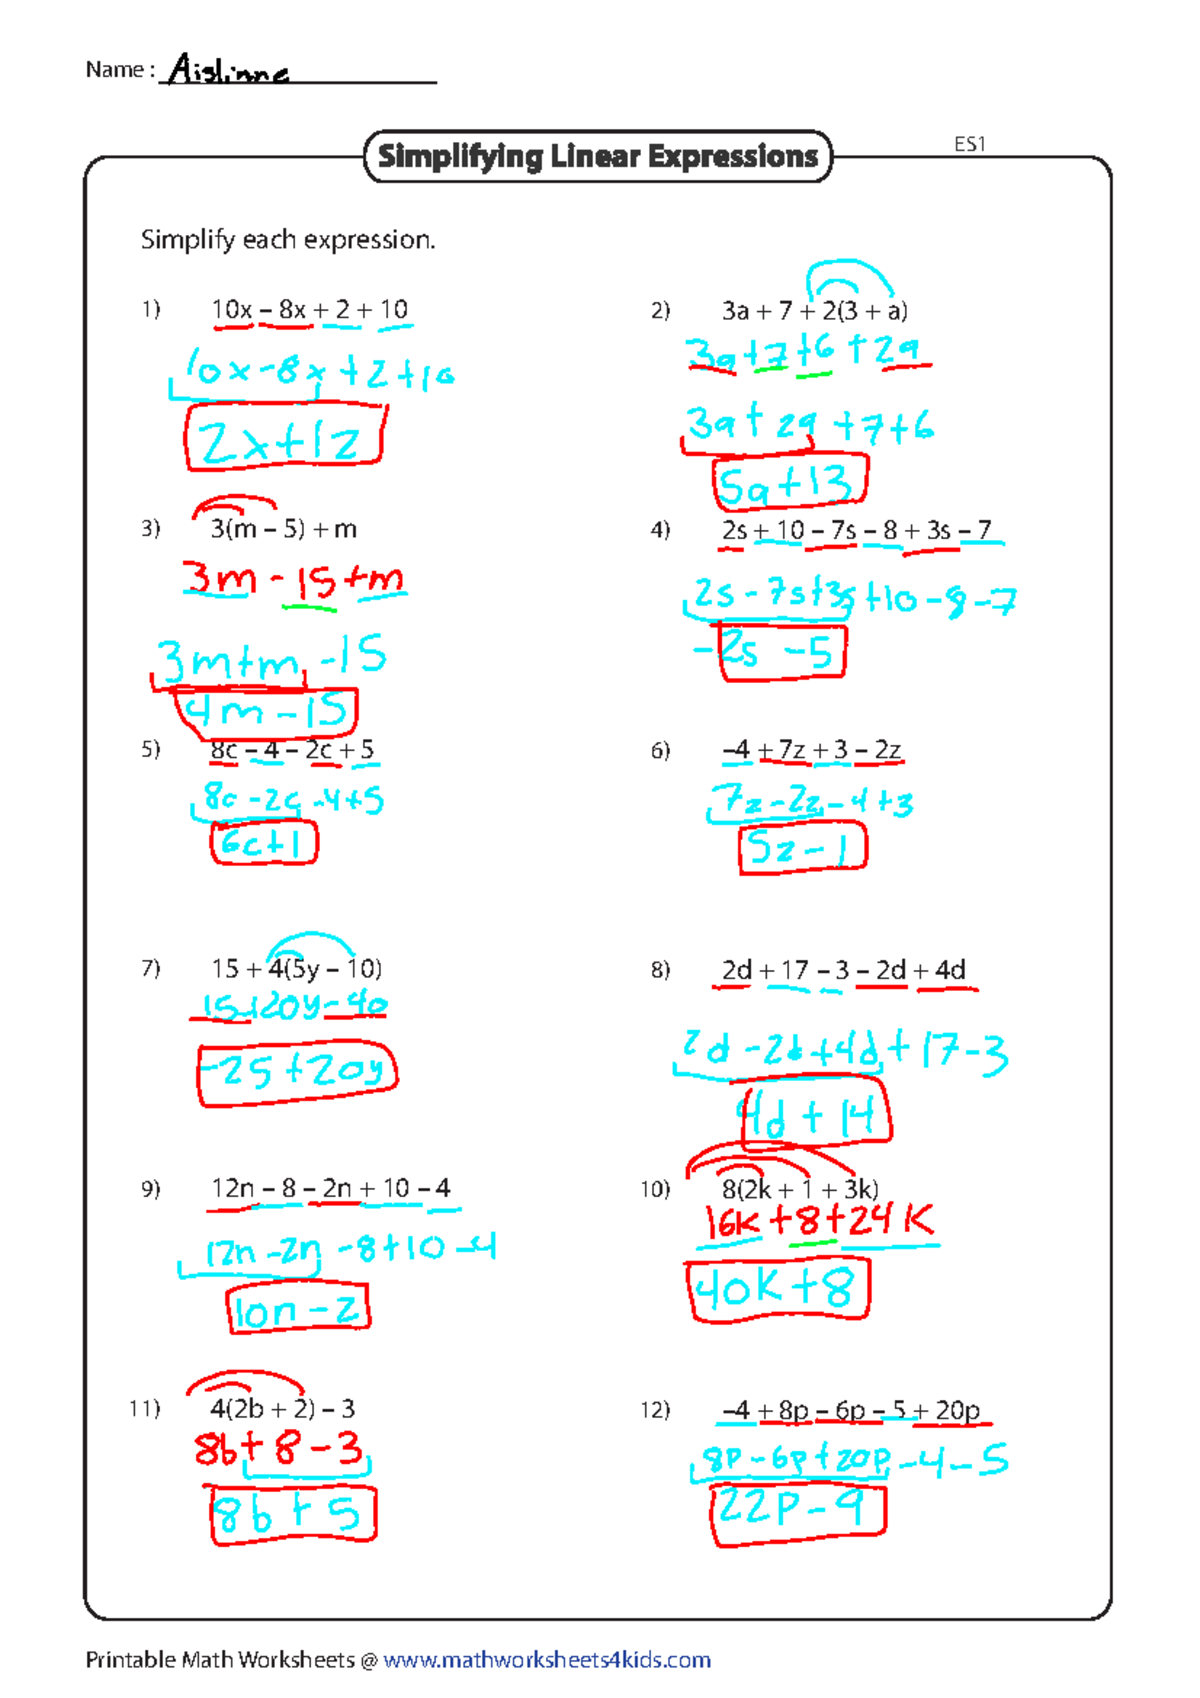 Name : Aislinne
Simplifying Linear Expressions
ES1
Simplify each expression.
1) 10x – 8x + 2 + 10
10x-8x+2+10
2x+12
2) 3a + 7 + 2(3 + a)
3a+7+6+2a
3a+2a+7+6
5a+13
3) 3(m – 5) + m
3m-15+m
3m+m-15
4m-15
4) 2s + 10 – 7s – 8 + 3s – 7
2s-7s+3s+10-8-7
-2s-5
5) 8c – 4 – 2c + 5
8c-2c-4+5
6c+1
6) –4 + 7z + 3 – 2z
7z-2z-4+3
5z-1
7) 15 + 4(5y – 10)
15+20y-40
-25+20y
8) 2d + 17 – 3 – 2d + 4d
2d-2d+4d+17-3
4d+14
9) 12n – 8 – 2n + 10 – 4
12n-2n-8+10-4
10n-2
10) 8(2k + 1 + 3k)
16k+8+24k
40k+8
11) 4(2b + 2) – 3
8b+8-3
8b+5
12) –4 + 8p – 6p – 5 + 20p
8p-6p+20p-4-5
22p-9
Printable Math Worksheets @ www.mathworksheets4kids.com